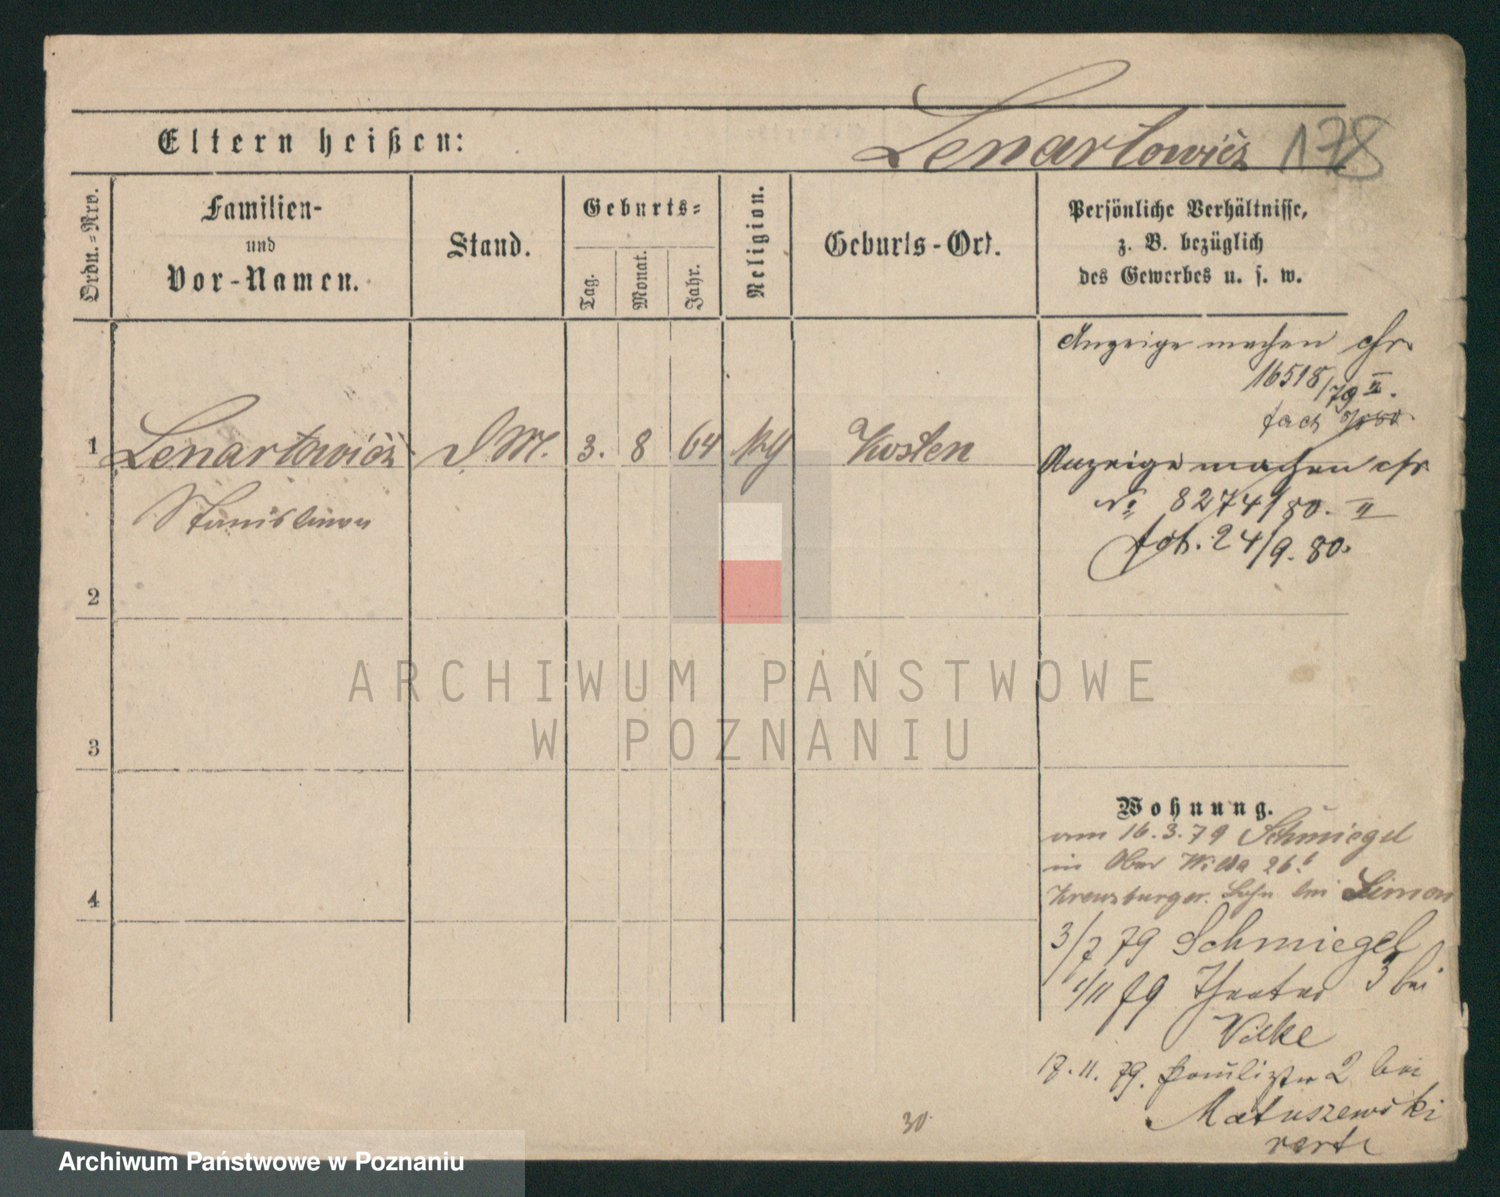 Eltern heißen: Lenartowicz 178
Ordn.-Nro.
Familien-
und
Vor-Namen.
Stand.
Geburts-
Tag.
Monat.
Jahr.
Religion.
Geburts-Ort.
Persönliche Verhältnisse,
z. B. bezüglich
des Gewerbes u. s. w.
Anzeige machen cfr.
16518/79 II.
1 Lenartowicz 3. 8 64 Kosten
Anzeige machen cfr
No 8274/80. II
24/9. 80.
2
3
4
Wohnung.
am 16.3.79 Schmiegel
in Ober Wilda 26
Kreuzburger bei Simon
3/7 79 Schmiegel
1/11 79 Theater 3 bei
Wilke
17.11.79. 2 bei
Matuszewski
verte
30
ARCHIWUM PAŃSTWOWE
W POZNANIU
Archiwum Państwowe w Poznaniu